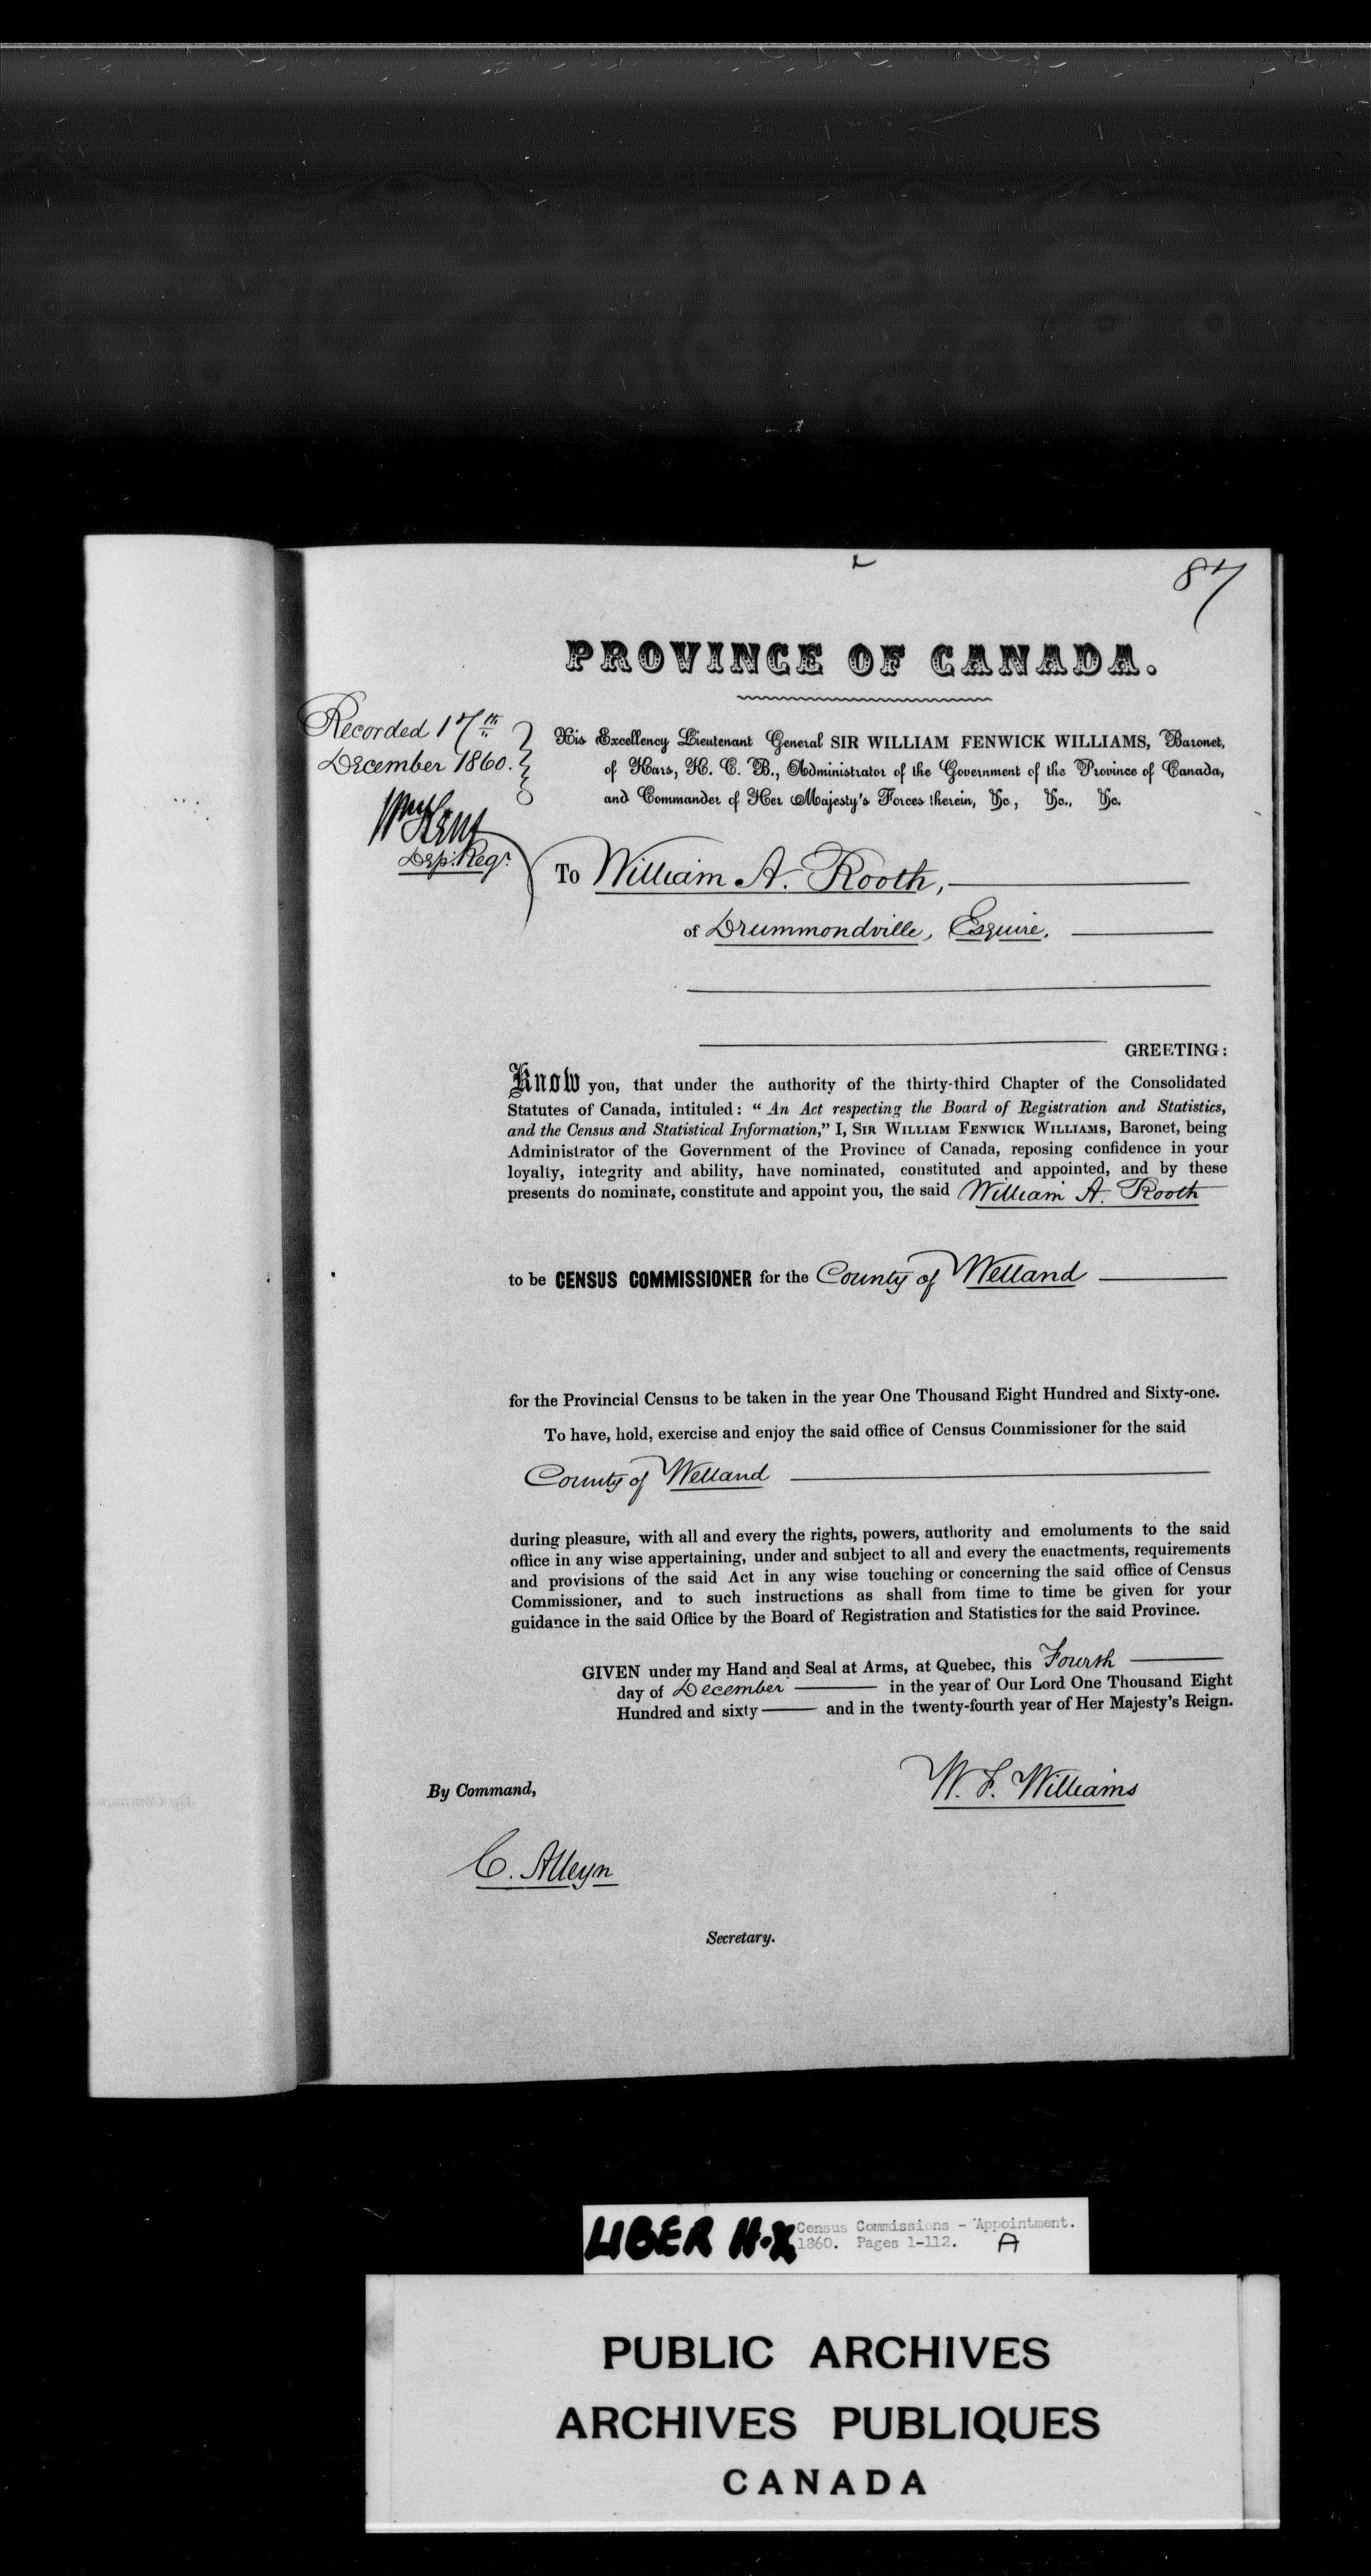 87
PROVINCE OF CANADA.
Recorded 17th
December 1860.
Wm Kent
Dep. Regr.
His Excellency Lieutenant General SIR WILLIAM FENWICK WILLIAMS, Baronet,
of Kars, K. C. B., Administrator of the Government of the Province of Canada,
and Commander of Her Majesty's Forces therein, &c., &c., &c.
To William A. Rooth,
of Drummondville, Esquire,
GREETING:
Know you, that under the authority of the thirty-third Chapter of the Consolidated
Statutes of Canada, intituled: "An Act respecting the Board of Registration and Statistics,
and the Census and Statistical Information," I, SIR WILLIAM FENWICK WILLIAMS, Baronet, being
Administrator of the Government of the Province of Canada, reposing confidence in your
loyalty, integrity and ability, have nominated, constituted and appointed, and by these
presents do nominate, constitute and appoint you, the said William A. Rooth
to be CENSUS COMMISSIONER for the County of Welland
for the Provincial Census to be taken in the year One Thousand Eight Hundred and Sixty-one.
To have, hold, exercise and enjoy the said office of Census Commissioner for the said
County of Welland
during pleasure, with all and every the rights, powers, authority and emoluments to the said
office in any wise appertaining, under and subject to all and every the enactments, requirements
and provisions of the said Act in any wise touching or concerning the said office of Census
Commissioner, and to such instructions as shall from time to time be given for your
guidance in the said Office by the Board of Registration and Statistics for the said Province.
GIVEN under my Hand and Seal at Arms, at Quebec, this Fourth
day of December in the year of Our Lord One Thousand Eight
Hundred and sixty and in the twenty-fourth year of Her Majesty's Reign.
W. F. Williams
By Command,
C. Alleyn
Secretary.
LIBER H-X Census Commissions - Appointment.
1860. Pages 1-112. A
PUBLIC ARCHIVES
ARCHIVES PUBLIQUES
CANADA